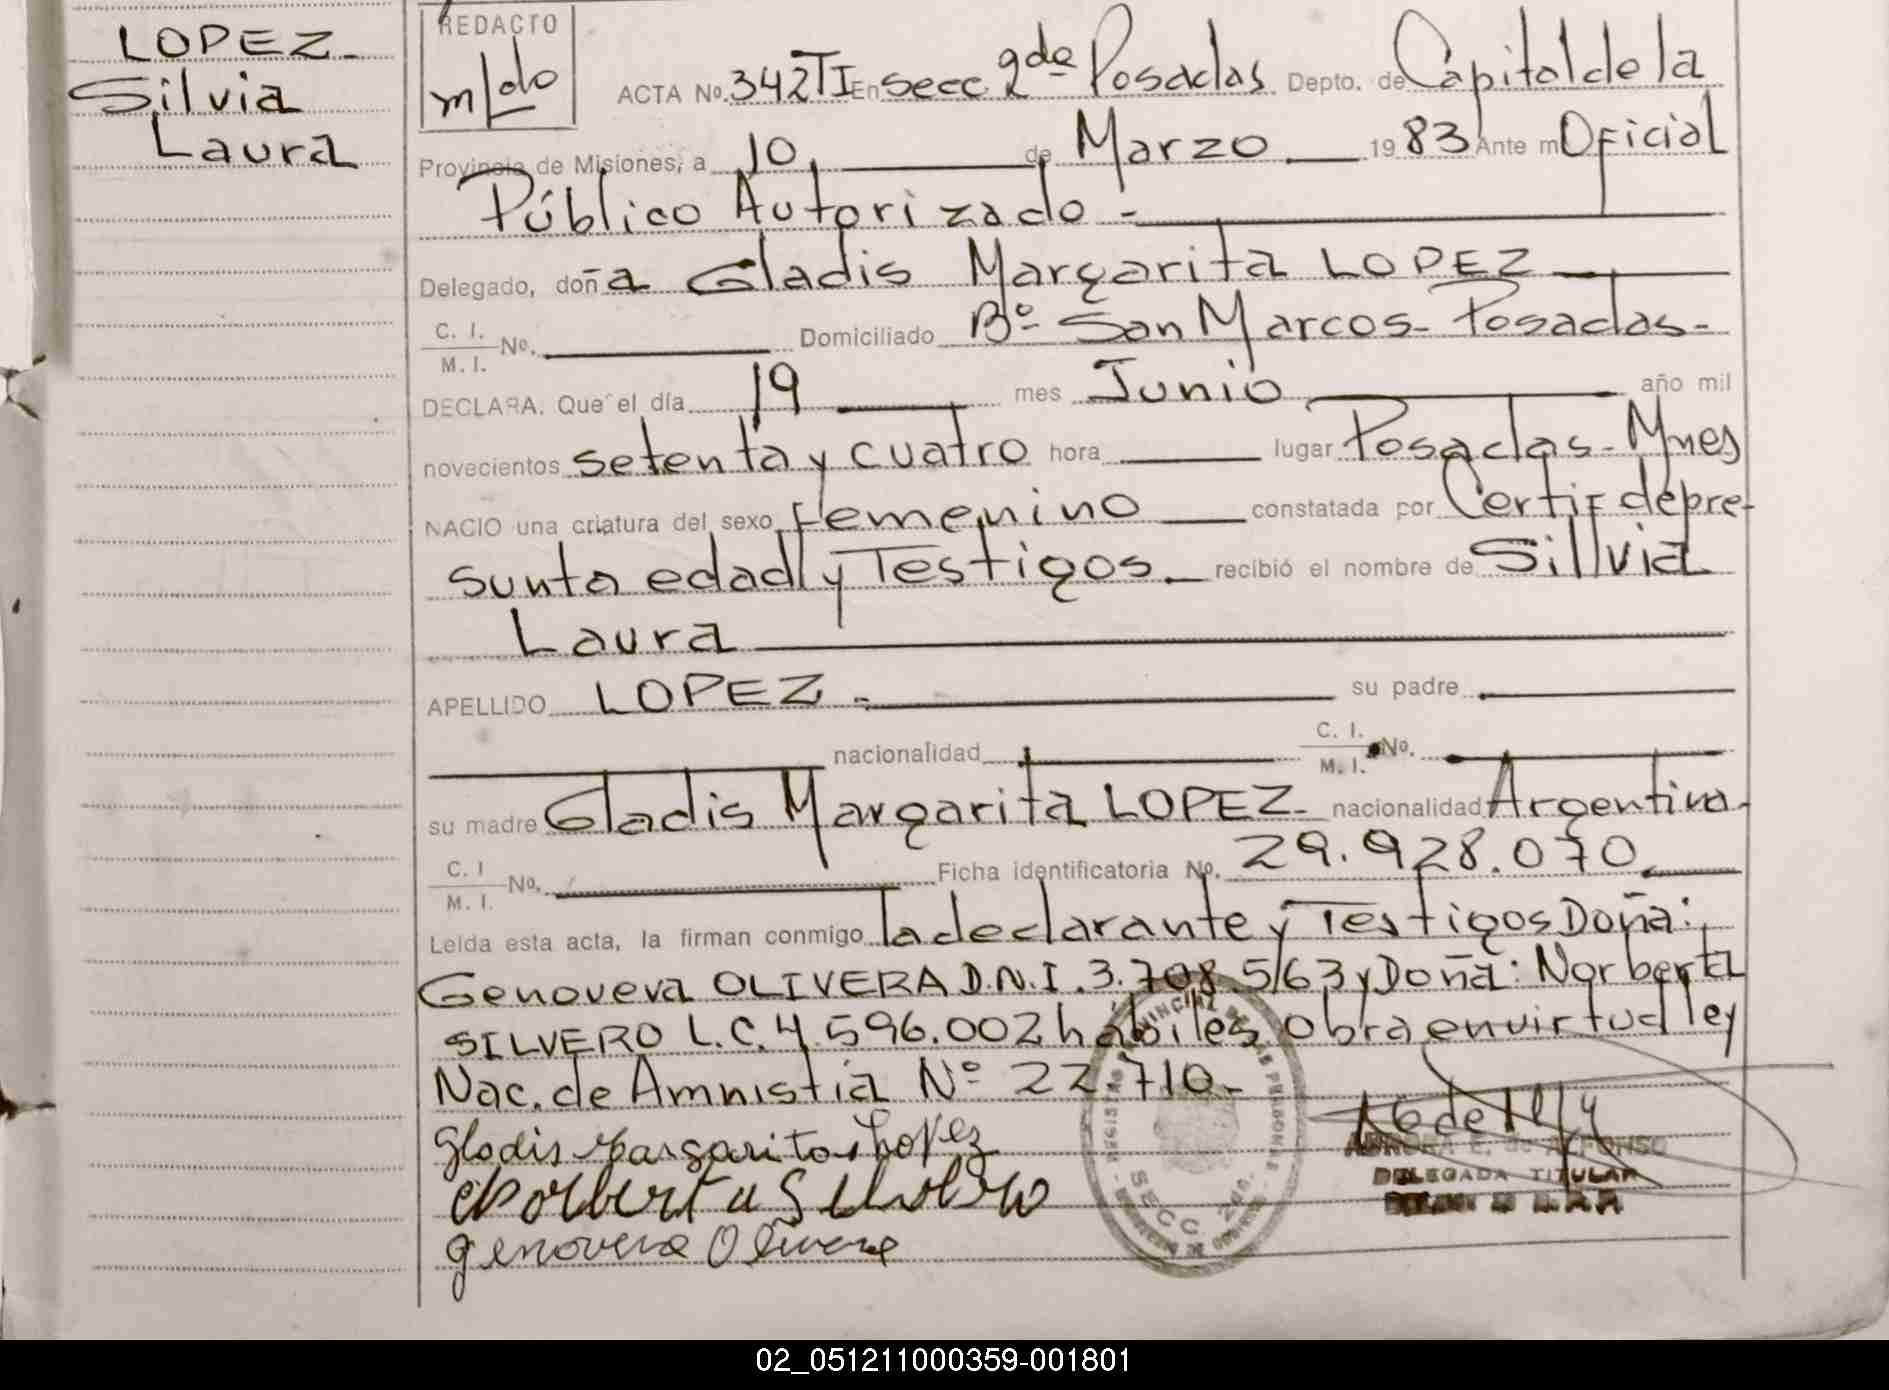 LOPEZ-
Silvia
Laura
REDACTO
ACTA No. 342 TI En Secc 2da Posadas Depto. de Capital de la
Provincia de Misiones, a 10 de Marzo 1983 Ante mi Oficial
Público Autorizado -
Delegado, doña Gladis Margarita LOPEZ
C. I.
M. I. No. Domiciliado Bº San Marcos- Posadas-
DECLARA. Que el día 19 mes Junio año mil
novecientos setenta y cuatro hora lugar Posadas- Mnes
NACIO una criatura del sexo femenino constatada por Certif de pre-
sunta edad y Testigos. recibió el nombre de Sillvia
Laura
APELLIDO LOPEZ - su padre
nacionalidad C. I.
M. I. No.
su madre Gladis Margarita LOPEZ- nacionalidad Argentina-
C. I
M. I. No. Ficha identificatoria No. 29.928.070
Leída esta acta, la firman conmigo la declarante y Testigos Doña:
Genoveva OLIVERA D.N.I. 3.708.563 y Doña: Norberta
SILVERO L.C. 4.596.002 hábiles Obra en virtud ley
Nac. de Amnistia Nº 22.710-
Gladis Margarita Lopez
Norberta Silvero
genoveva Olivera
SECC 2da.
AURORA E. de ALFONSO
DELEGADA TITULAR
02_051211000359-001801